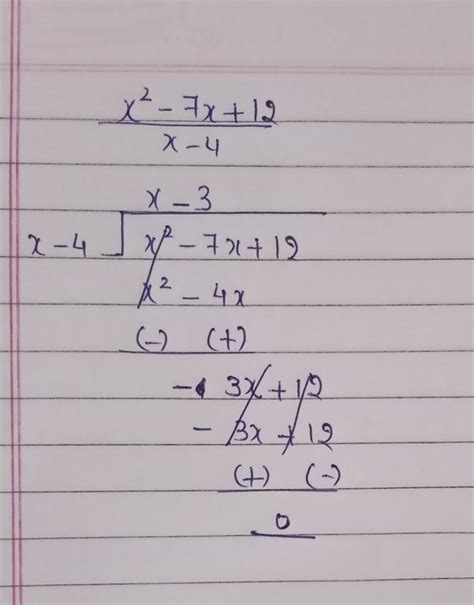 x² - 7x + 12
x - 4
x - 3
x - 4 x² - 7x + 12
x² - 4x
(-) (+)
- 3x + 12
- 3x + 12
(+) (-)
0